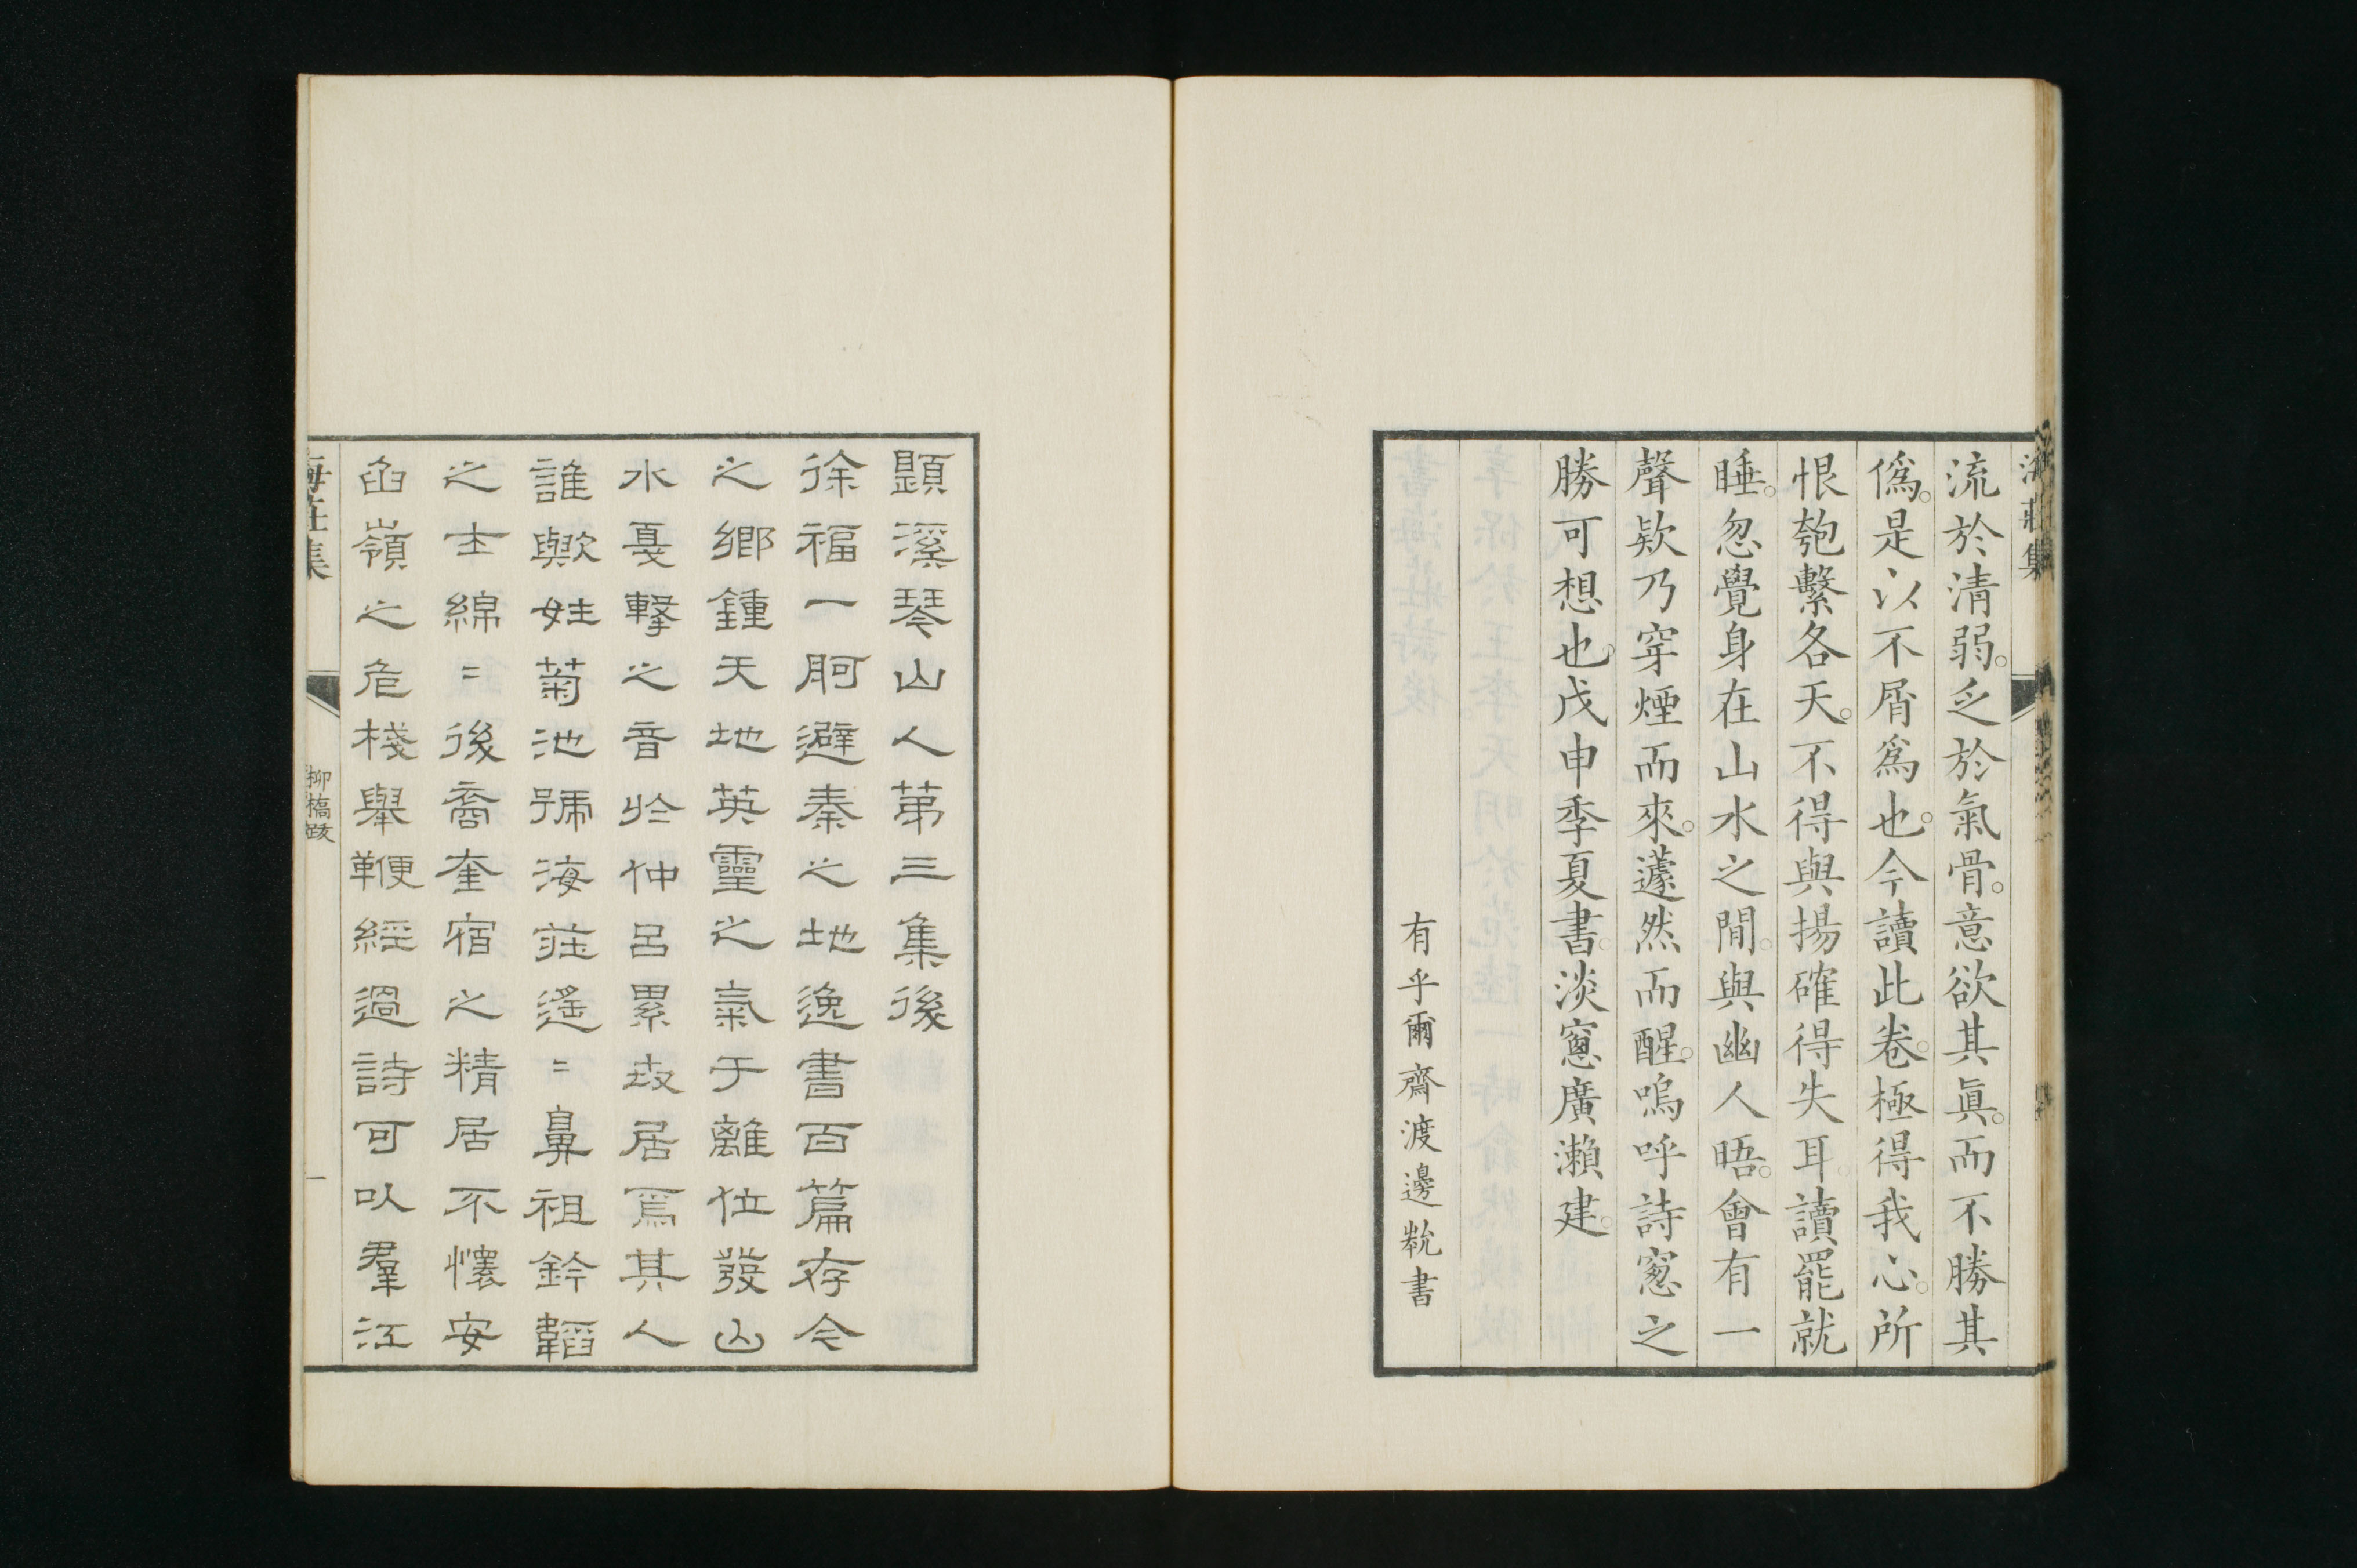 海莊集
流於清弱。乏於氣骨。意欲其眞。而不勝其
僞。是以不屑爲也。今讀此卷。極得我心。所
恨匏繫各天。不得與揚確得失耳。讀罷就
睡。忽覺身在山水之間。與幽人晤。會有一
聲欵乃穿煙而來。蘧然而醒。嗚呼詩窻之
勝可想也。戊申季夏書。淡窻廣瀨建。
有乎爾齋渡邊㪇書
顕溪琴山人第三集後
徐福一舸避秦之地逸書百篇存今
之鄉鍾天地英靈之氣于離位發山
水戛擊之音於仲呂累故居焉其人
誰歟姓菊池號海莊遙〻鼻祖鈐韜
之士綿〻後裔奎宿之精居不懷安
凾嶺之危棧舉鞭經過詩可以羣江
海莊集
柳橋跋
一